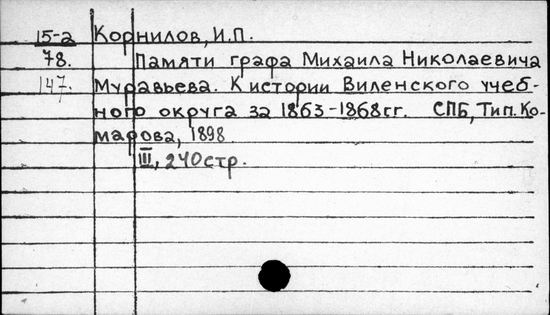 15-2 Корнилов, И.П.
78. Памяти графа Михаила Николаевича
147. Муравьева. К истории Виленского учеб-
ного округа за 1863-1868гг. СПБ, Тип. Ко-
марова, 1898.
III, 240стр.